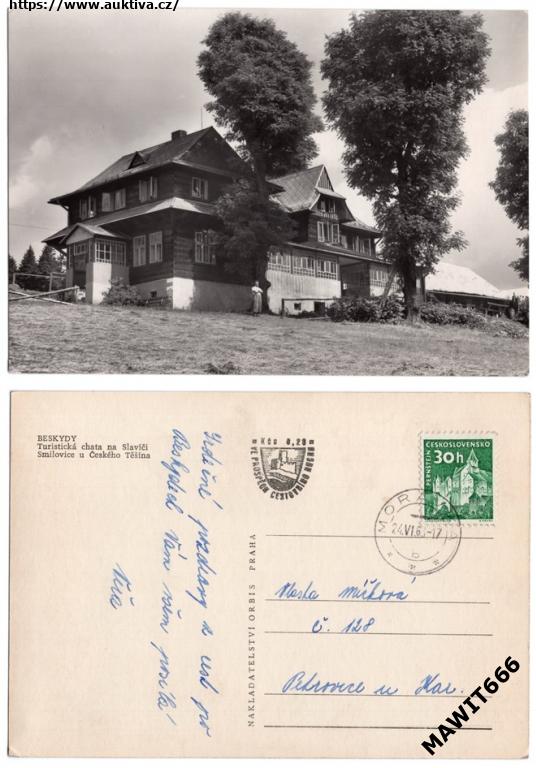 https://www.auktiva.cz/
BESKYDY
Turistická chata na Slavíči
Smilovice u Českého Těšína
Kčs 0,20
VE PROSPĚCH CESTOVNÍHO RUCHU
ČESKOSLOVENSKO
30h
PERNŠTEJN
MORAVKA
24.VI.6 -17
b
Srdečné pozdravy z cest po
Beskydech Vám všem posílá
Věra
NAKLADATELSTVÍ ORBIS PRAHA
Vlasta
č. 128
Petrovice u Kar.
MAWIT666